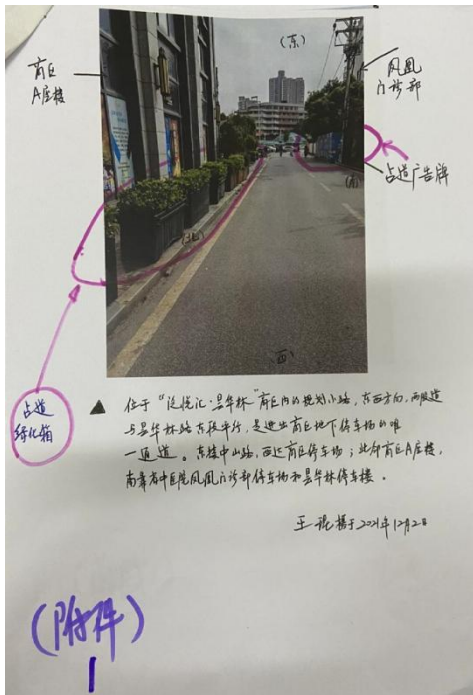 (东)
商区
A座楼
凤凰
门诊部
占道广告牌
(北)
(南)
(西)
占道
绿化箱
▲ 位于“泛悦汇·昙华林”商区内的规划小路，东西方向，两股道
与昙华林路古段平行，是进出商区地下停车场的唯
一通道。东接中山路，西近商区停车场；北邻商区A座楼，
南靠省中医院凤凰门诊部停车场和昙华林停车楼。
王 摄于2021年12月2日
(附件)
1